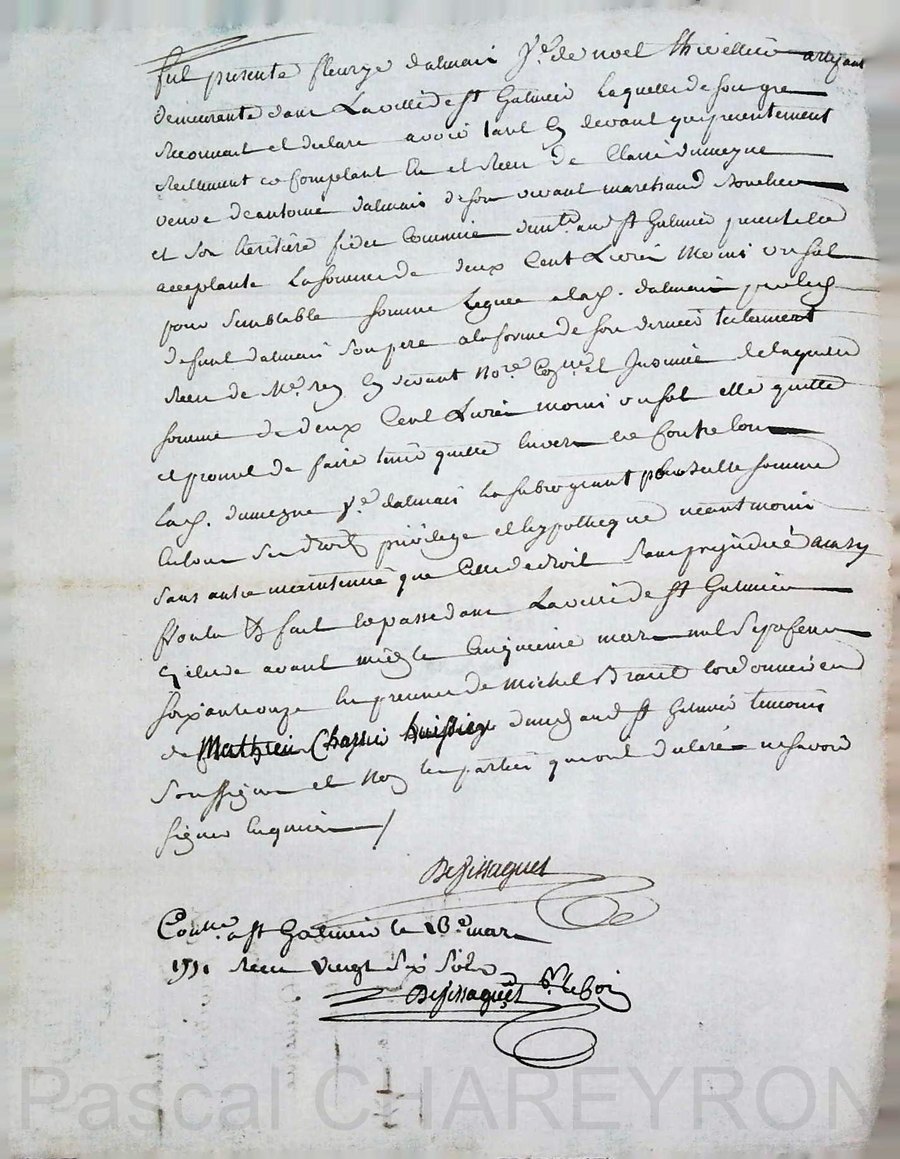 fut presente fleurye dalmais v.e de noel thivellier artisant
demeurante dans La ville de st Galmier Laquelle de son gre
reconnoit et declare avoir tant cy devant que presentement
reellement et Comptant Eu et Receu de Claire
veuve de antoine dalmais de son vivant marchand
et son heritiere fidei Commise demte. aud st Galmier presente et
acceptante La somme de deux Cent Livres Moins un sol
pour semblable somme Leguee a lad. dalmais par led.
defunt dalmais son pere a la forme de son dernier testament
Receu de Me. Rey Cy devant Nore. et Insinué de laquelle
somme de deux Cent Livres moins un sol elle quitte
et promet de faire tenir quitte Envers et Contre tous
Lad. ve. dalmais La subrogeant pour telle somme
En tous ses droits privilege et hypotheque neantmoins
sans autre maintenue que Celle de droit sans prejudice
fait et passe dans La ville de st Galmier
Etude avant midy le Cinquieme mars mil Sept Cent
soixante onze En presence de Michel Cordonnier
de Mathieu Chassin huissier dud. aud st Galmier temoins
soussignes et Non les parties qui ont declaré ne savoir
signer Enquises
Depissaguet
Conlle. a st Galmier le 18e mars
1771 Receu Vingt Six Sols
Depissaguet